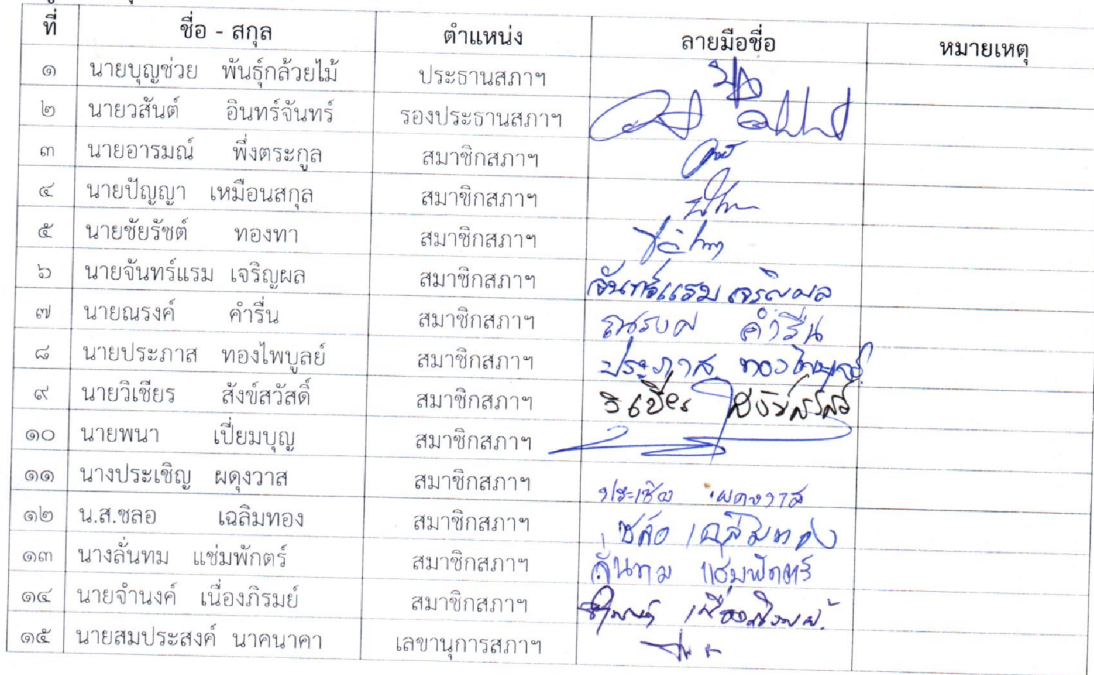 ที่ ชื่อ - สกุล ตำแหน่ง ลายมือชื่อ หมายเหตุ
๑ นายบุญช่วย พันธุ์กล้วยไม้ ประธานสภาฯ
๒ นายวสันต์ อินทร์จันทร์ รองประธานสภาฯ
๓ นายอารมณ์ พึ่งตระกูล สมาชิกสภาฯ
๔ นายปัญญา เหมือนสกุล สมาชิกสภาฯ
๕ นายชัยรัชต์ ทองทา สมาชิกสภาฯ
๖ นายจันทร์แรม เจริญผล สมาชิกสภาฯ จันทร์แรม เจริญผล
๗ นายณรงค์ คำรื่น สมาชิกสภาฯ ณรงค์ คำรื่น
๘ นายประภาส ทองไพบูลย์ สมาชิกสภาฯ ประภาส ทองไพบูลย์
๙ นายวิเชียร สังข์สวัสดิ์ สมาชิกสภาฯ วิเชียร
๑๐ นายพนา เปี่ยมบุญ สมาชิกสภาฯ
๑๑ นางประเชิญ ผดุงวาส สมาชิกสภาฯ ประเชิญ ผดุงวาส
๑๒ น.ส.ชลอ เฉลิมทอง สมาชิกสภาฯ ชลอ เฉลิมทอง
๑๓ นางลั่นทม แช่มพักตร์ สมาชิกสภาฯ ลั่นทม แช่มพักตร์
๑๔ นายจำนงค์ เนื่องภิรมย์ สมาชิกสภาฯ เนื่องภิรมย์
๑๕ นายสมประสงค์ นาคนาคา เลขานุการสภาฯ